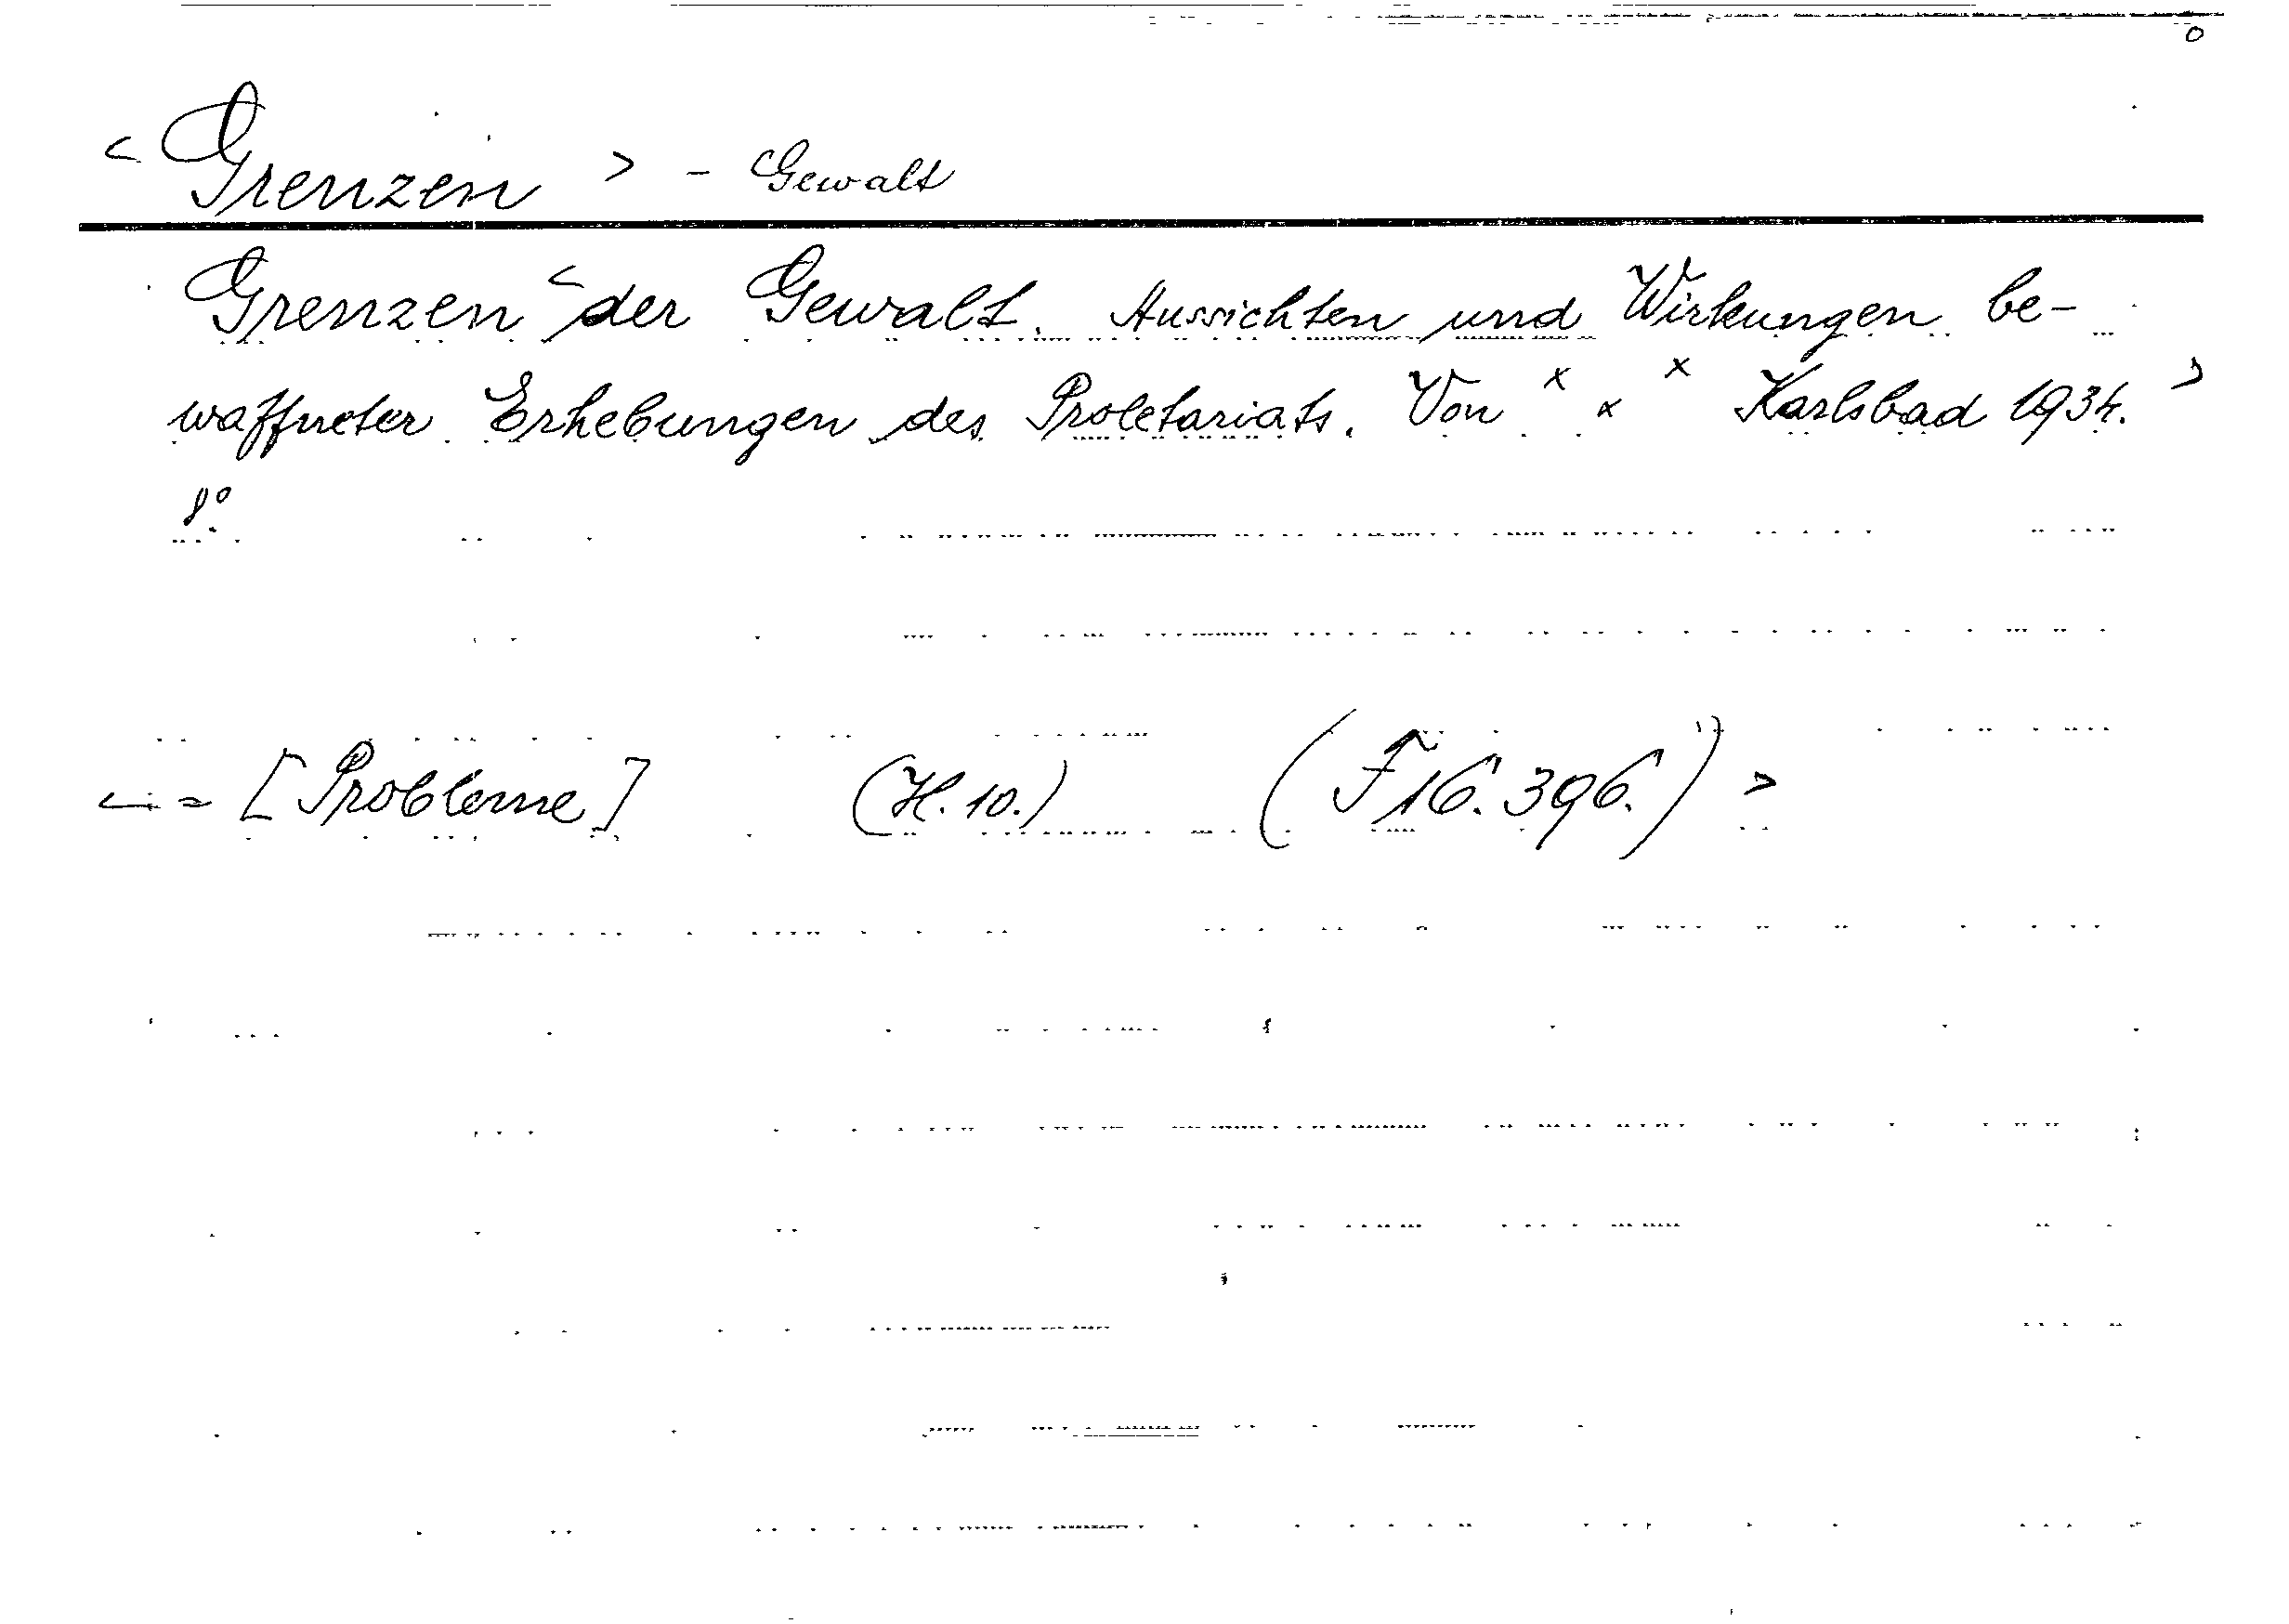 < Grenzen > - Gewalt
Grenzen < der Gewalt. Aussichten und Wirkungen be-
waffneter Erhebungen des Proletariats. Von x x x Karlsbad 1934. >
8°
= [Probleme] (H. 10.) (F 16. 396.) >